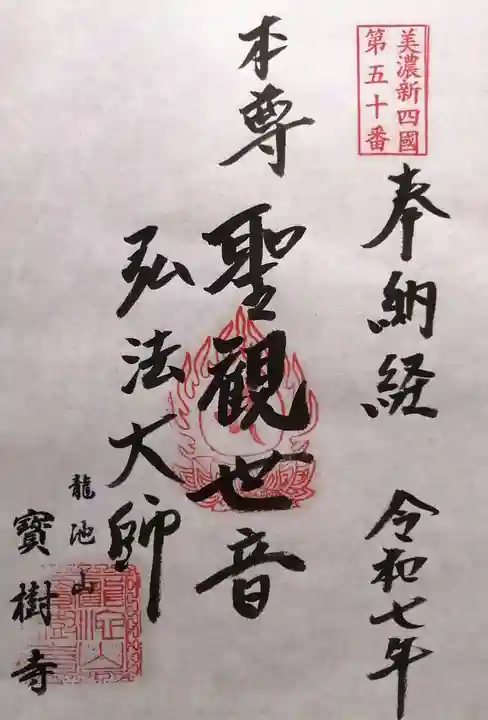 美濃新四國
第五十番
奉納経 令和七年
本尊 聖観世音
弘法大師
龍池山
寶樹寺